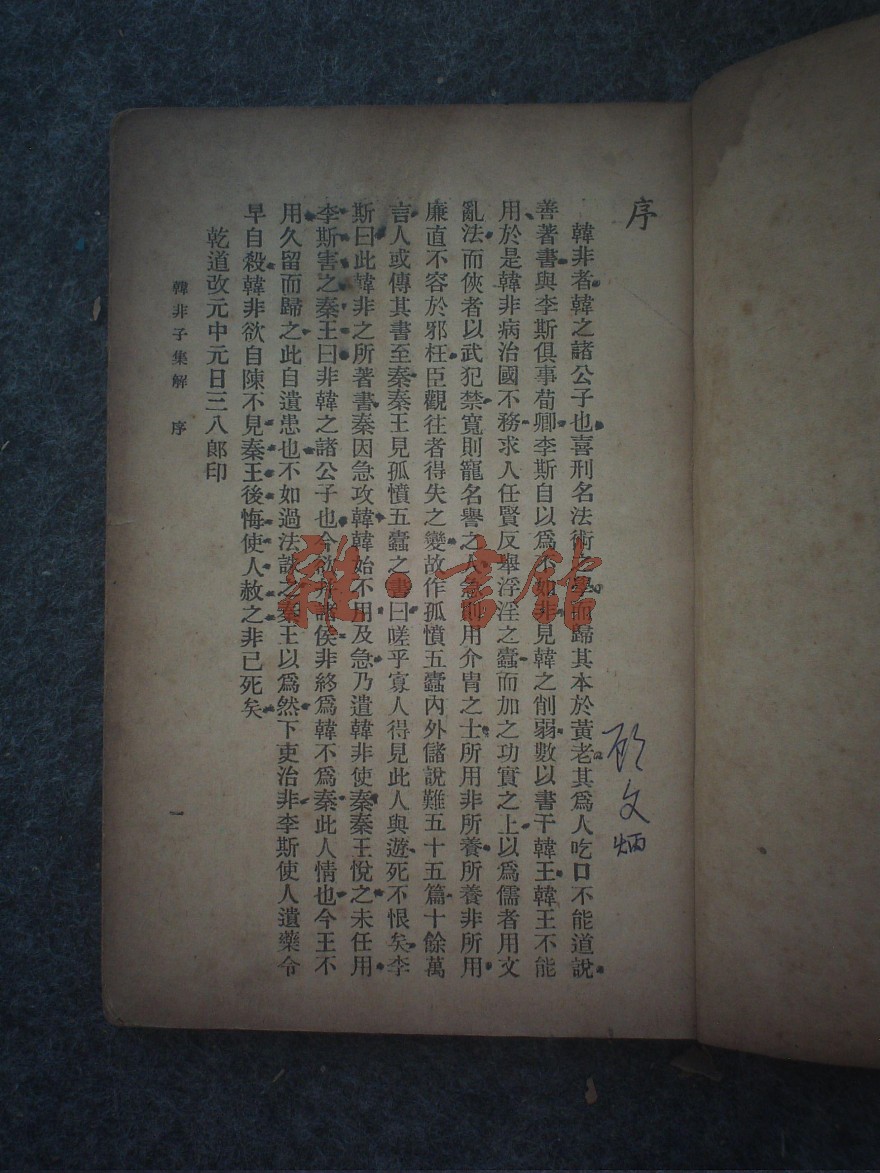 序
顾文炳
韓非者韓之諸公子也喜刑名法術之學而歸其本於黃老其爲人吃口不能道說
善著書與李斯俱事荀卿李斯自以爲不如非見韓之削弱數以書干韓王韓王不能
用於是韓非病治國不務求人任賢反舉浮淫之蠹而加之功實之上以爲儒者用文
亂法而俠者以武犯禁寬則寵名譽之人急則用介冑之士所用非所養所養非所用
廉直不容於邪枉臣觀往者得失之變故作孤憤五蠹內外儲說難五十五篇十餘萬
言人或傳其書至秦秦王見孤憤五蠹之書曰嗟乎寡人得見此人與遊死不恨矣李
斯曰此韓非之所著書秦因急攻韓韓始不用及急乃遣韓非使秦秦王悅之未任用
李斯害之秦王曰非韓之諸公子也今欲幷諸侯非終爲韓不爲秦此人情也今王不
用久留而歸之此自遺患也不如過法誅之秦王以爲然下吏治非李斯使人遺藥令
早自殺韓非欲自陳不見秦王後悔使人赦之非已死矣
乾道改元中元日三八郎印
韓非子集解 序
一
雜·書館